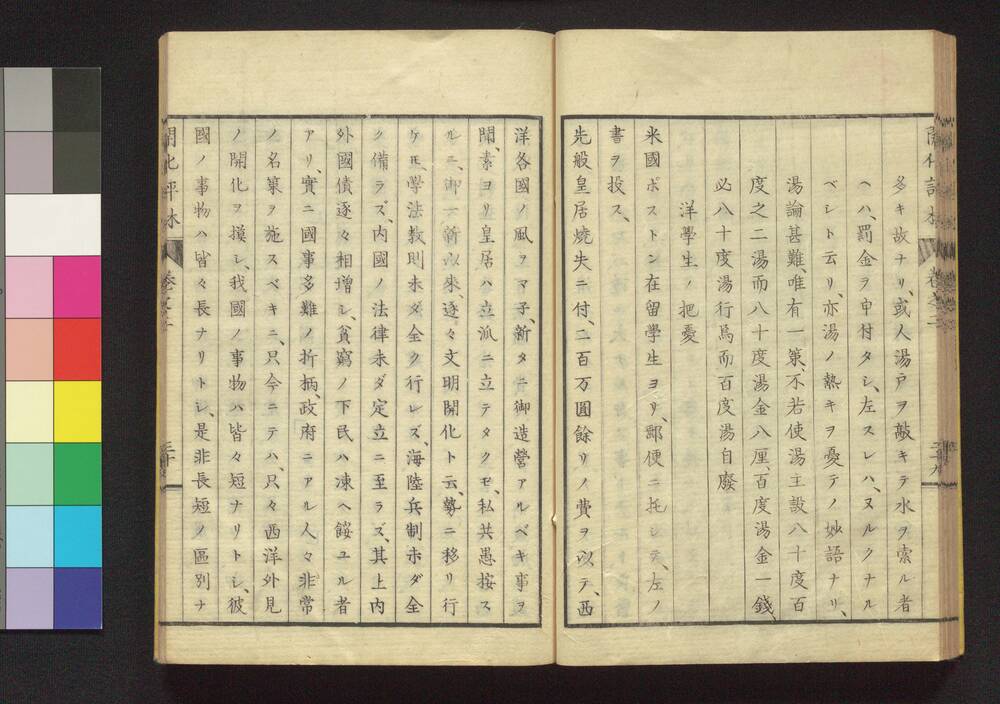 多キ故ナリ、或人湯戸ヲ敲キテ水ヲ索ル者
ヘハ、罰金ヲ申付タシ、左スレハ、ヌルクナル
ベシト云リ、亦湯ノ熱キヲ憂テノ妙語ナリ、
湯論甚難、唯有一策、不若使湯主設八十度百
度之二湯而八十度湯金八厘、百度湯金一錢、
必八十度湯行焉而百度湯自廢
洋學生ノ把憂
米國ポストン在留學生ヨリ、郵便ニ托シテ、左ノ
書ヲ投ス、
先般皇居燒失ニ付、二百万圓餘リノ費ヲ以テ、西
洋各國ノ風ヲマ子、新タニ御造營アルベキ事ヲ
聞、素ヨリ皇居ハ立派ニ立テタクモ、私共愚按ス
ルニ、御一新以來、逐々文明開化ト云、勢ニ移リ行
ケモ、學法教則未ダ全ク行レズ、海陸兵制未ダ全
ク備ラズ、内國ノ法律未ダ定立ニ至ラズ、其上内
外國債逐々相増シ、貧窮ノ下民ハ凍ヘ餒ユル者
アリ、實ニ國事多難ノ折柄、政府ニアル人々非常
ノ名策ヲ施スベキニ、只今ニテハ、只々西洋外見
ノ開化ヲ摸シ、我國ノ事物ハ皆々短ナリトシ、彼
國ノ事物ハ皆々長ナリトシ、是非長短ノ區別ナ
開化評林 卷之二 三十